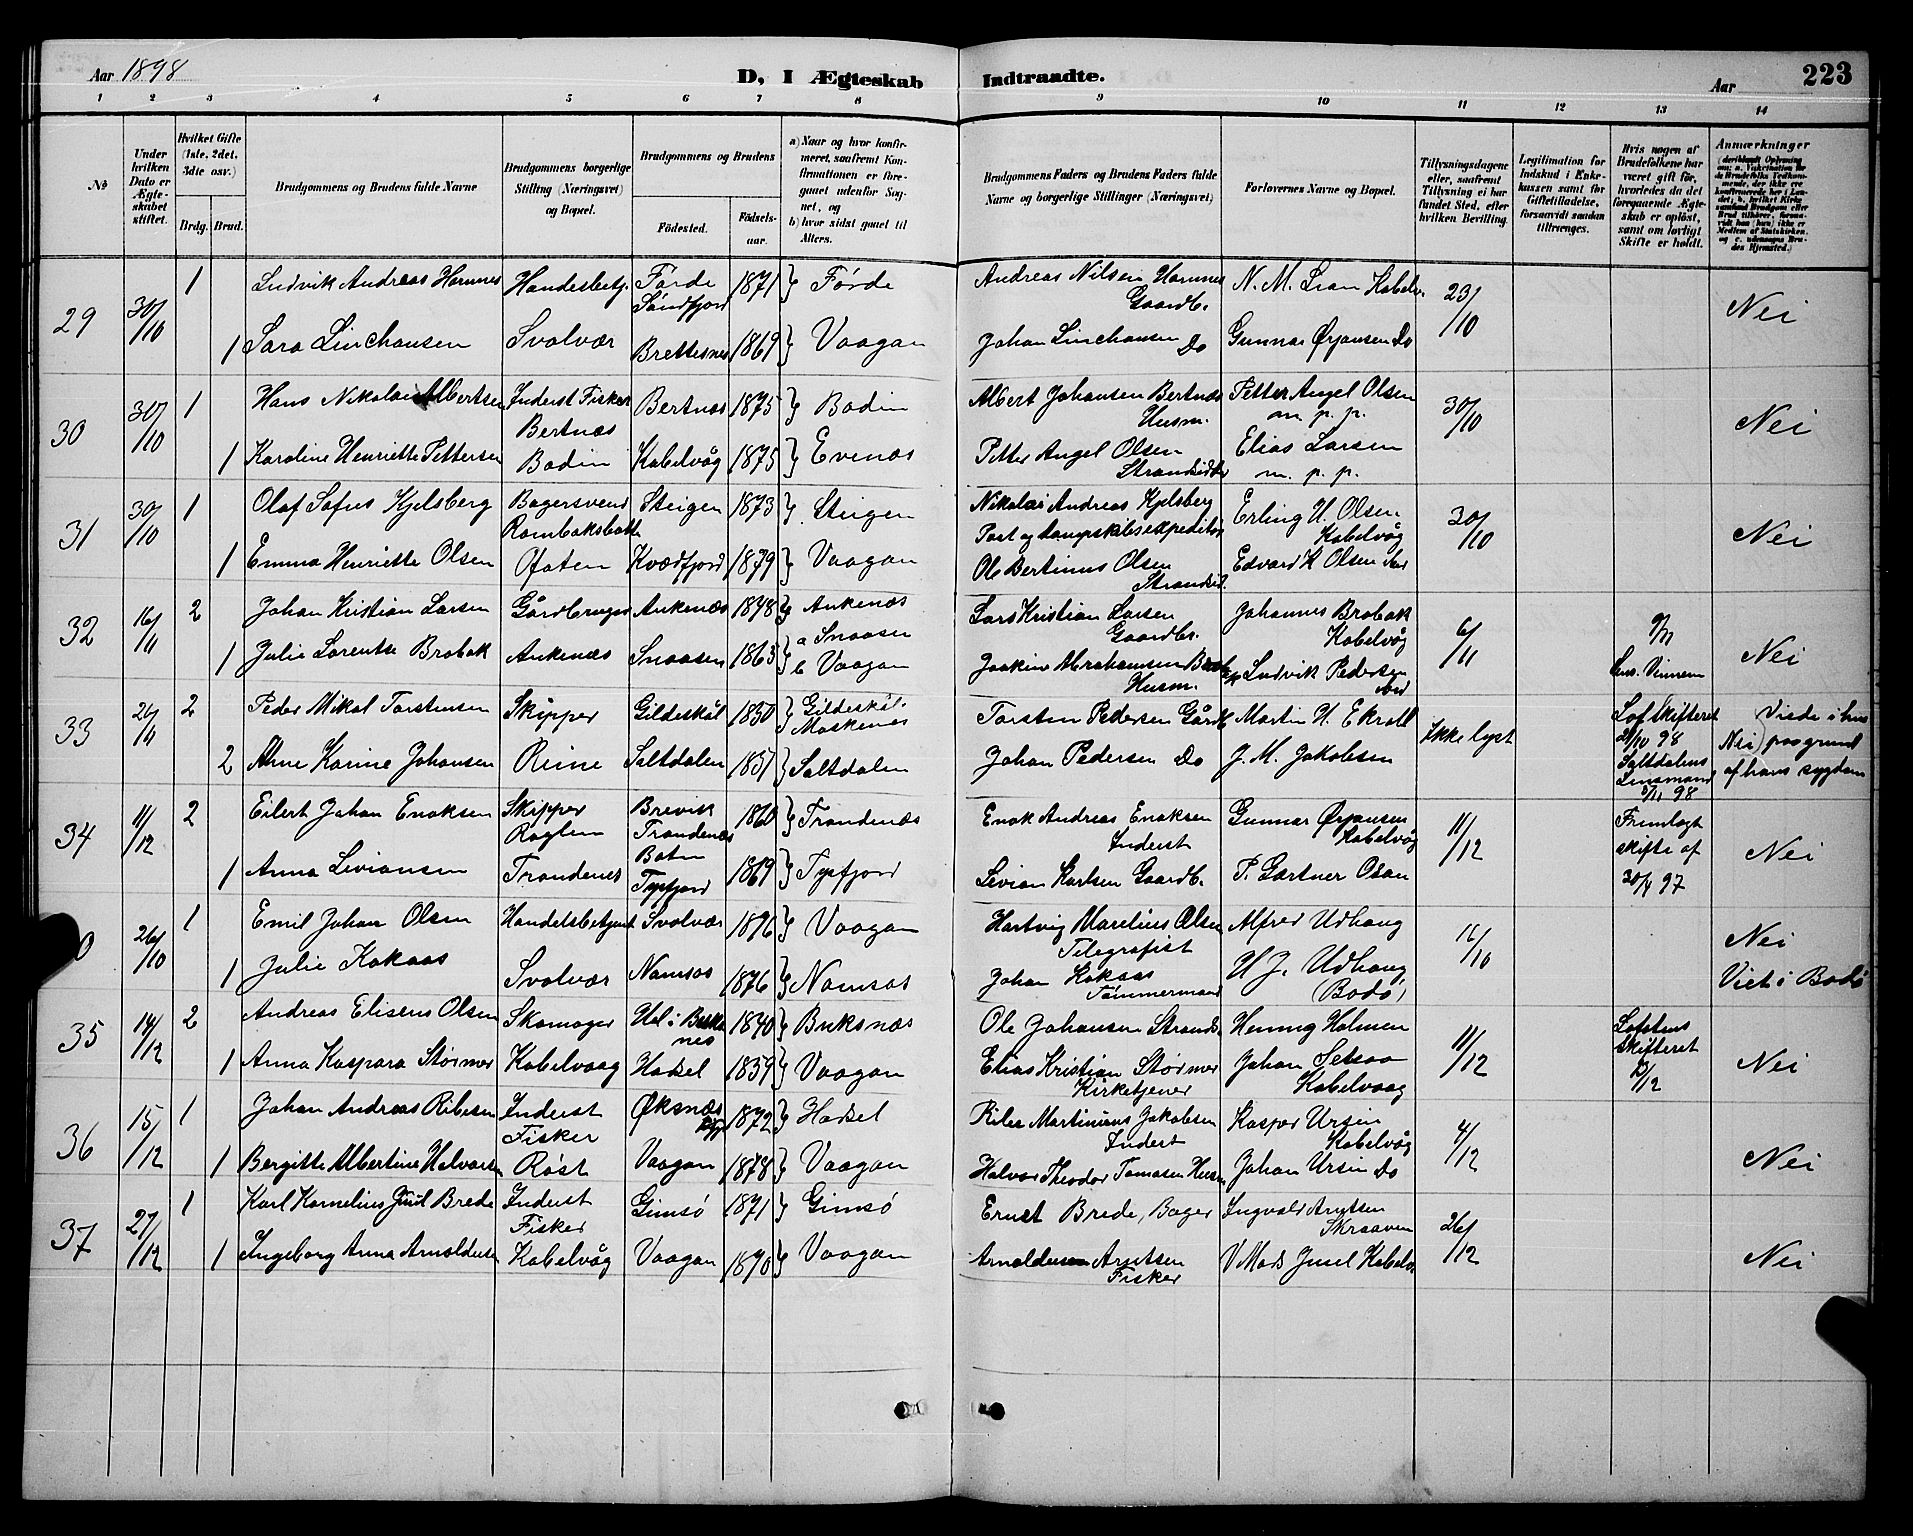 Aar 1898
D, I Ægteskab Indtraadte.
Aar
223
1 2 3 4 5 6 7 8 9 10 11 12 13 14
No
Under hvilken Dato er Ægteskabet stiftet.
Hvilket Gifte (1ste, 2det, 3dte osv.)
Brdg. Brud.
Brudgommens og Brudens fulde Navne
Brudgommens borgerlige Stilling (Næringsvei) og Bopæl.
Brudgommens og Brudens
Födested.
Födselsaar.
a) Naar og hvor konfirmeret, saafremt Konfirmationen er foregaaet udenfor Sognet, og
b) hvor sidst gaaet til Alters.
Brudgommens Faders og Brudens Faders fulde Navne og borgerlige Stillinger (Næringsvei)
Forlovernes Navne og Bopæl.
Tillysningsdagene eller, saafremt Tillysning ei har fundet Sted, efter hvilken Bevilling.
Legitimation for Indskud i Enkekassen samt for Giftetilladelse, forsaavidt saadan tiltrænges.
Hvis nogen af Brudefolkene har været gift før, hvorledes da det foregaaende Ægteskab er oplöst, samt om lovligt Skifte er holdt.
Anmærkninger
29 30/10 1 Ludvik Andreas Hamnes Handesbetj. Førde Søndfjord 1871 } Førde Andreas Nilsen Hamnes Gaardb. N. M. Lian Kabelv. 23/10 Nei
1 Sara Linchausen Svolvær Brettesnes 1869 } Vaagan Johan Linchausen Do Gunnar Ørjansen Do
30 30/10 1 Hans Nikolai Albertsen Inderst Fisker Bertnæs 1875 } Bodin Albert Johansen Bertnæs Husm. Petter Angel Olsen m. p. p. 30/10 Nei
1 Karoline Henriette Pettersen Bertnæs Bodin Kabelvåg 1875 } Evenæs Petter Angel Olsen Strandsidder Elias Larsen m. p. p.
31 30/10 1 Olaf Sofus Kjelsberg Bagersvend Steigen 1873 } Steigen Nikolai Andreas Kjelsberg Post og dampskibsexpeditør Erling H. Olsen Kabelvåg 30/10 Nei
1 Emma Henriette Olsen Rombaksbotn Ofoten Kvædfjord 1879 } Vaagan Ole Bertinus Olsen Strandsid. Edvard H Olsen
32 16/11 2 Johan Kristian Larsen Gårdbruger Ankenæs 1848 } Ankenæs Lars Kristian Larsen Gaardbr. Johannes Brobak Kabelvåg 6/11 Nei
1 Julie Lorentse Brobak Ankenæs Snaasen 1863 } a Snaasen b Vaagan Joakim Abrahamsen Husm. Ludvik Pedersen
Lens. Vinnem
33 26/11 2 Peder Mikal Torstensen Skipper Gildeskål 1830 } Gildeskål. Moskenes Torsten Pedersen Gårdb Martin H. Ekroll Ikke lyst Lof. Skifteret 21/10 98 Viede i hus
2 Ane Karine Johansen Reine Saltdalen 1837 } Saltdalen Johan Pedersen Do J. M. Jakobsen Saltdalens Lensmand 3/11 98 Nei) paa grund af hans sygdom
34 11/12 2 Eilert Johan Enoksen Skipper Brevik Trondenæs 1860 } Trondenæs Enok Andreas Enoksen Inderst Gunnar Ørjansen Kabelvåg 11/12 Fremlagt skifte af 30/4 97 Nei
1 Anna Livionsen Trondenes Botn Tysfjord 1869 } Tysfjord Levion Karlsen Gaardb. P. Gartner Osan
0 26/10 1 Emil Johan Olsen Handelsbetjent Svolvær 1876 } Vaagan Hartvig Marelius Olsen Telegrafist Alfred Udhaug 16/10 Nei
1 Julie Kokaas Svolvær Namsos 1876 } Namsos Johan Kokaas Tømmermand H J. Udhaug (Bodø) Viet i Bodø
35 14/12 2 Andreas Eliseus Olsen Skomager Hol i Buksnes 1840 } Buksnæs Ole Johansen Strands. Henning Holmen 11/12 Lofotens Skifteret 12/12 Nei
1 Anna Kaspara Størmer Kabelvaag Hadsel 1859 } Vaagan Elias Kristian Størmer Kirketjener Johan Setsaa Kabelvaag
36 15/12 1 Johan Andreas Ribesen Inderst Fisker Øksnæs 1872 } Hadsel Ribe Martinius Jakobsen Inderst Kasper Ursin Kabelvåg 4/12 Nei
1 Bergitte Albertine Halvorsen Røst Vaagan 1878 } Vaagan Halvor Theodor Tomasen Husm Johan Ursin Do
37 27/12 1 Karl Kornelius Juul Brede Inderst Fisker Gimsø 1871 } Gimsø Ernst Brede, Bager Ingvald Arntsen Skraaven 26/12 Nei
1 Ingeborg Anna Arnoldusen Kabelvåg Vaagan 1870 } Vaagan Arnoldus Arntsen Fisker V Mads Juul Kabelv.